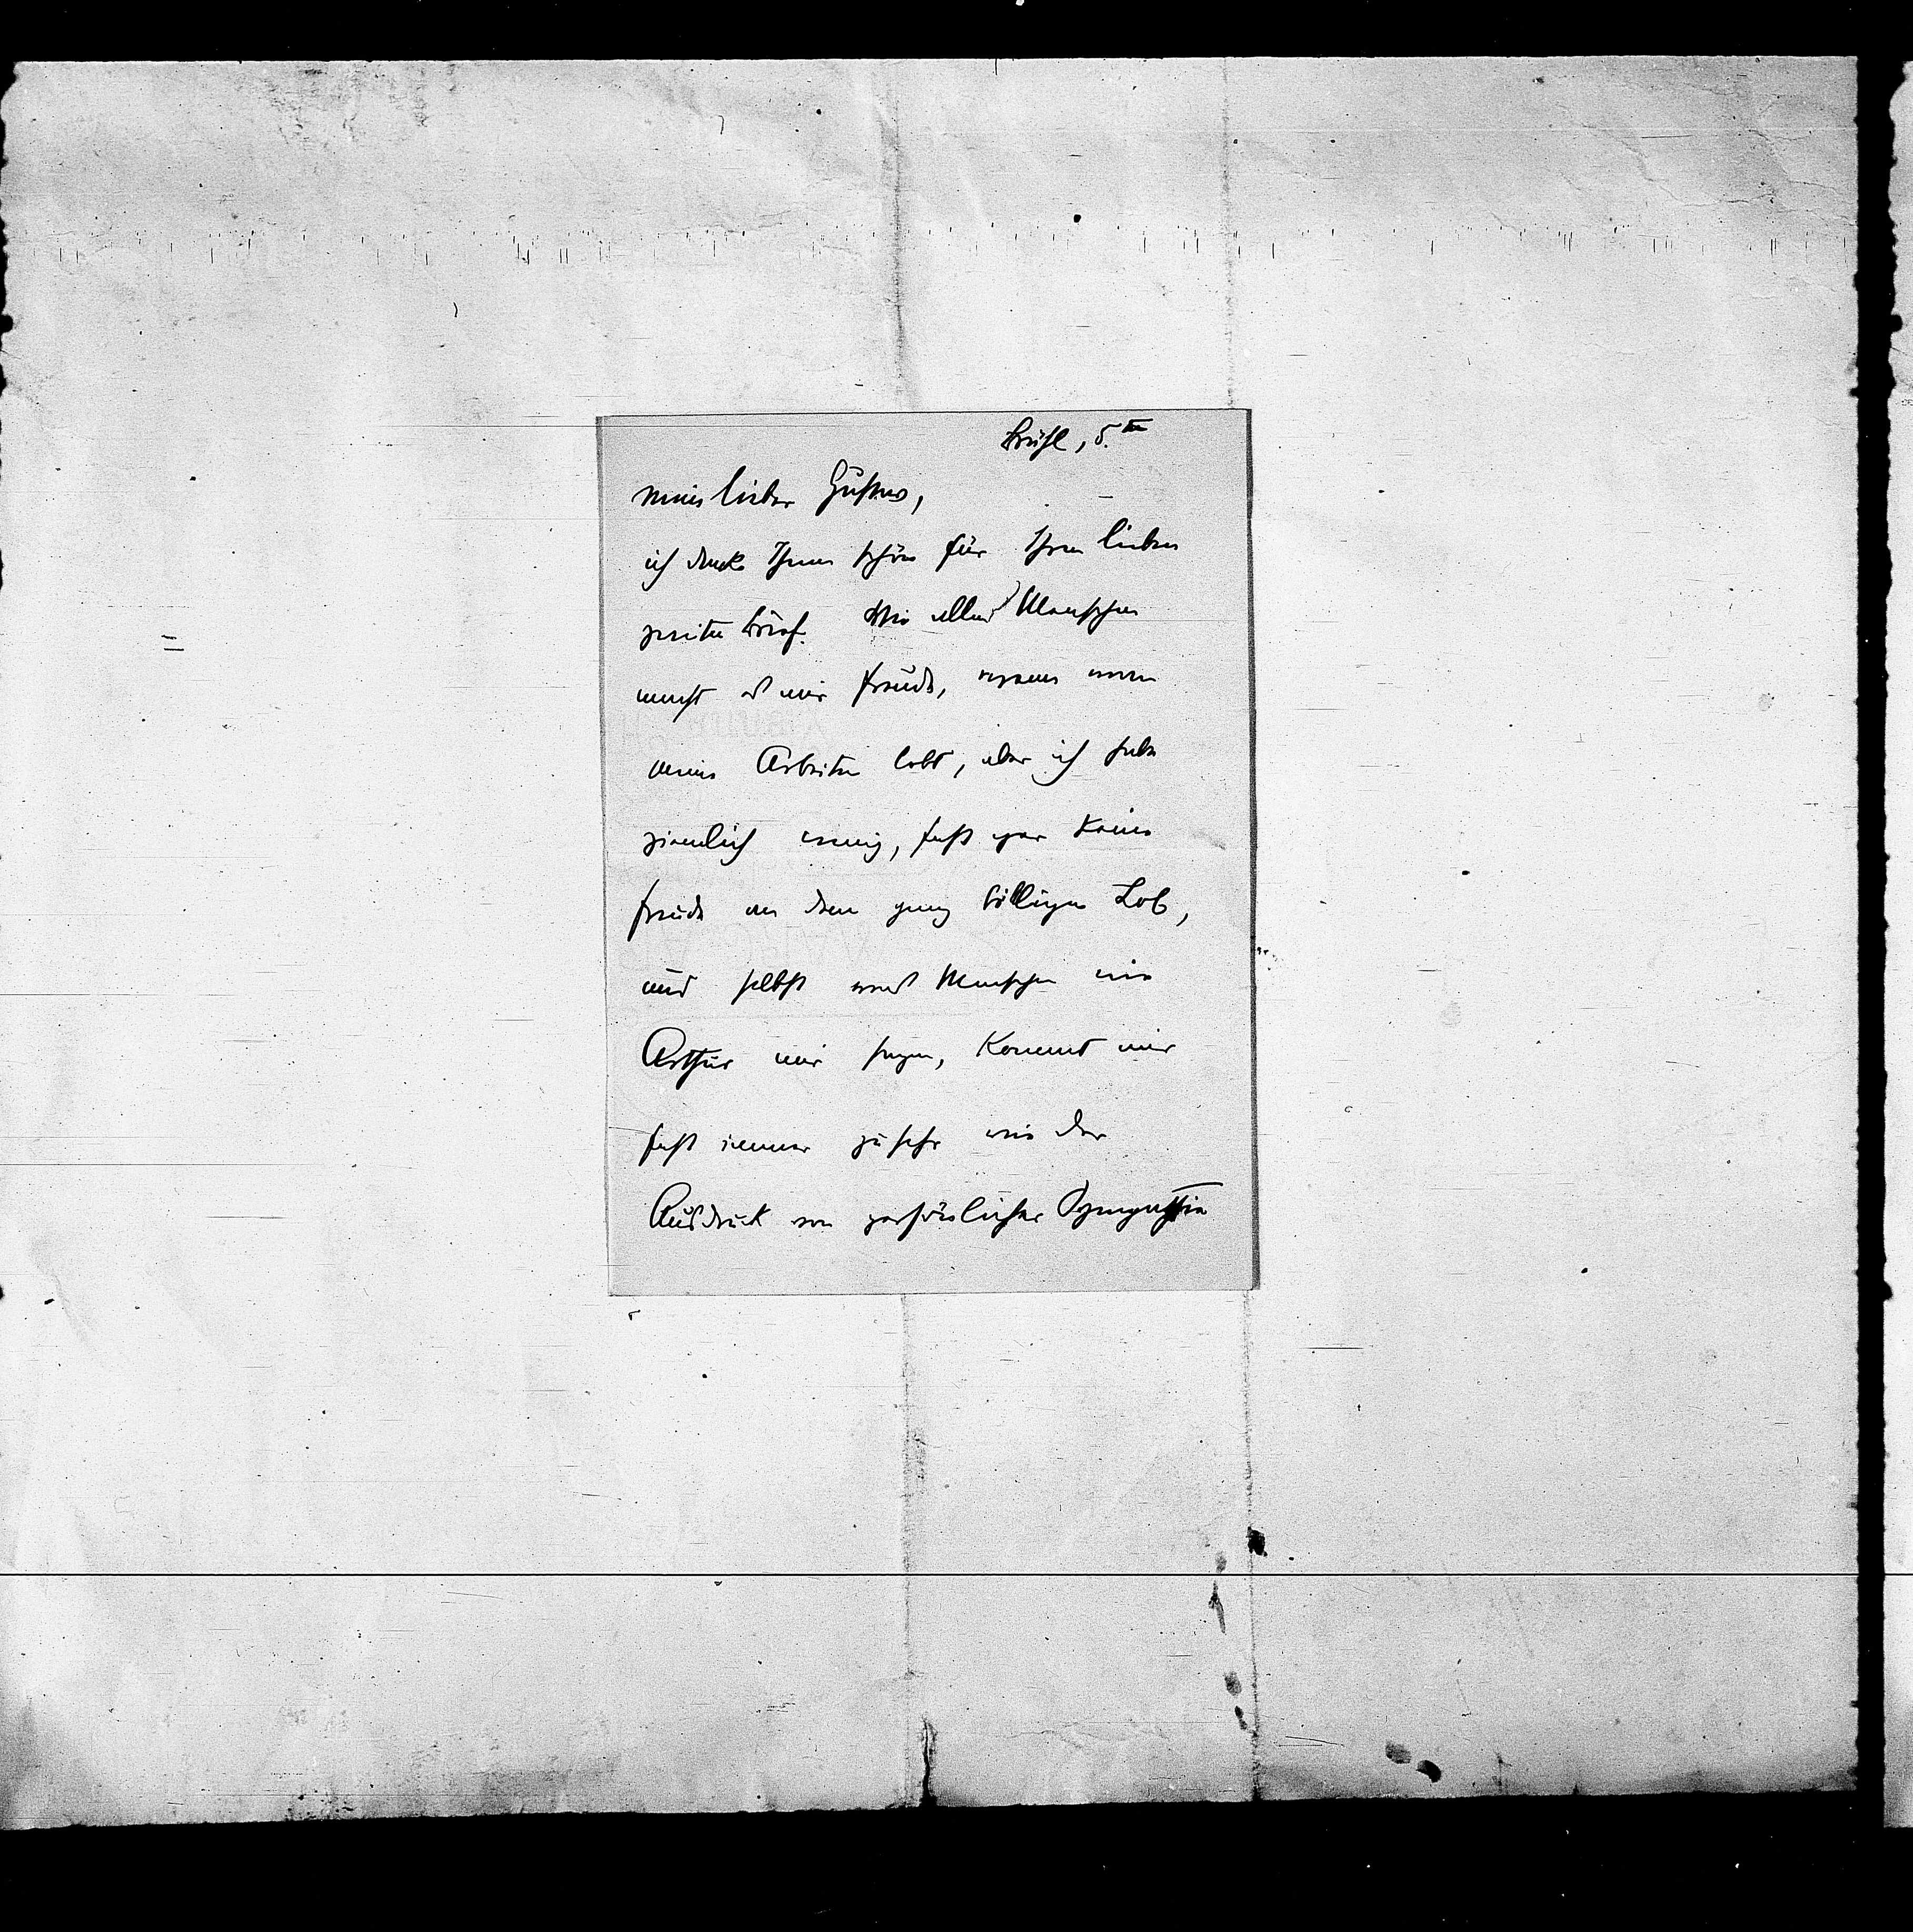 Brühl, 5.ten
mein lieber Gustav,
ich danke Ihnen schön für Ihren lieben
zweiten Brief. Wie allen Menschen
macht es mir Freude, wenn man
meine Arbeiten lobt, aber ich habe
ziemlich wenig, fast gar keine
Freude an dem ganz billigen Lob,
und selbst was Menschen wie
Arthur mir sagen, kommt mir
fast immer zu sehr wie der
Ausdruck von persönlicher Sympathie